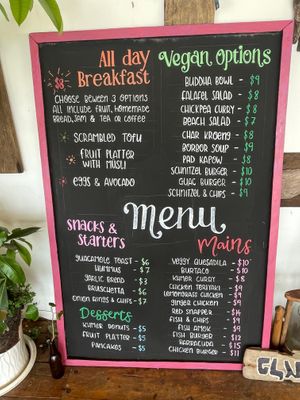 All day
Breakfast
$8
Choose beween 3 options
All include fruit, homemade
bread, jam & tea or coffee
Scrambled tofu
Fruit platter
with musli
eggs & avocado
Vegan Options
Buddha bowl - $9
Falafel salad - $8
Chickpea curry - $8
Beach salad - $7
Char kroeng - $8
Borbor soup - $9
Pad kapow - $8
Schnitzel burger - $10
Guac burger - $10
Schnitzel & chips - $9
Menu
Snacks &
Starters
Guacamole toast - $6
Hummus - $7
Garlic bread - $3
Bruschetta - $6
Onion rings & chips - $7
Desserts
Kumer donuts - $5
Fruit platter - $5
Pancakes - $5
Mains
Veggy quesadila - $10
Burtaco - $10
Kumer curry - $8
Chicken teriyaki - $9
Lemongrass chicken - $9
Ginger chicken - $9
Red snapper - $14
Fish & chips - $9
Fish amok - $9
Fish burger - $11
Barracuda - $15
Chicken burger - $11